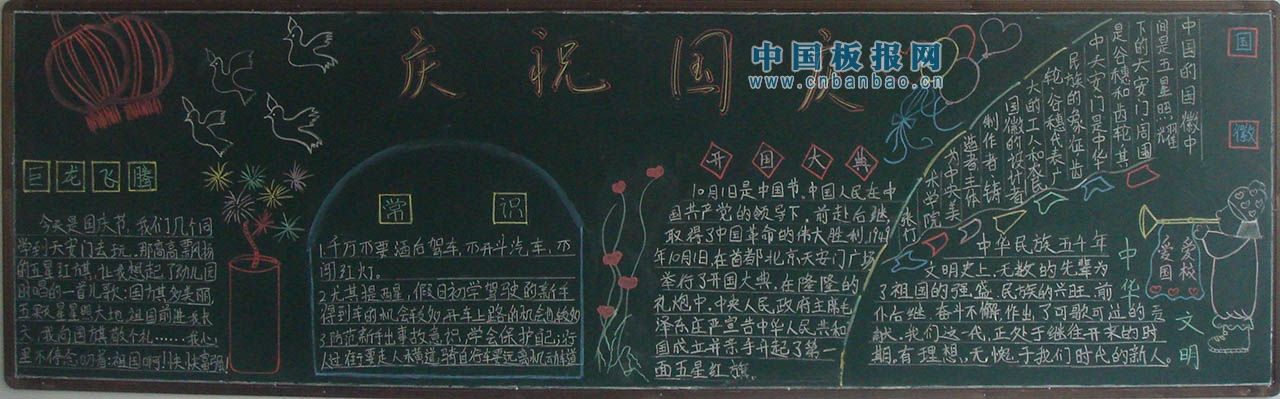 庆祝国庆
中国板报网
www.cnbanbao.cn
巨龙飞腾
今天是国庆节,我们几个同
学到天安门去玩。那高高飘扬
的五星红旗,让我想起了幼儿园
时唱的一首儿歌:国旗多美丽,
五颗星星照大地,祖国前进我长
大,我向国旗敬个礼……我心
里不停念叨着:祖国啊!快快富强!
常识
1千万不要酒后驾车,不开斗汽车,不
闯红灯。
2尤其提醒,假日初学驾驶的新手
得到车的机会较多,开车上路的机会也较多
了防范新伤事故意识,学会保护自己;行
人过街要走人行横道,骑自行车要远离机动车道
开国大典
10月1日是中国节,中国人民在中
国共产党的领导下,前赴后继,
取得了中国革命的伟大胜利,1949
年10月1日,在首都北京天安门广场
举行了开国大典,在隆隆的
礼炮中,中央人民政府主席毛
泽东庄严宣告中华人民共和
国成立并亲手升起了第一
面五星红旗。
国徽
中国的国徽中
间是五星照耀
下的天安门周围
是谷穗和齿轮其
中天安门是中华
民族的象征齿
轮、谷穗代表广
大的工人和农民
国徽的设计者
制作者、铸
造者主体
为中央美
术学院
张仃
中华文明
中华民族五千年
文明史上,无数的先辈为
了祖国的强盛,民族的兴旺,前
仆后继,奋斗不懈,作出了可歌可泣的贡
献,我们这一代,正处于继往开来的时
期,有理想,无愧于我们时代的新人。
爱校
爱国